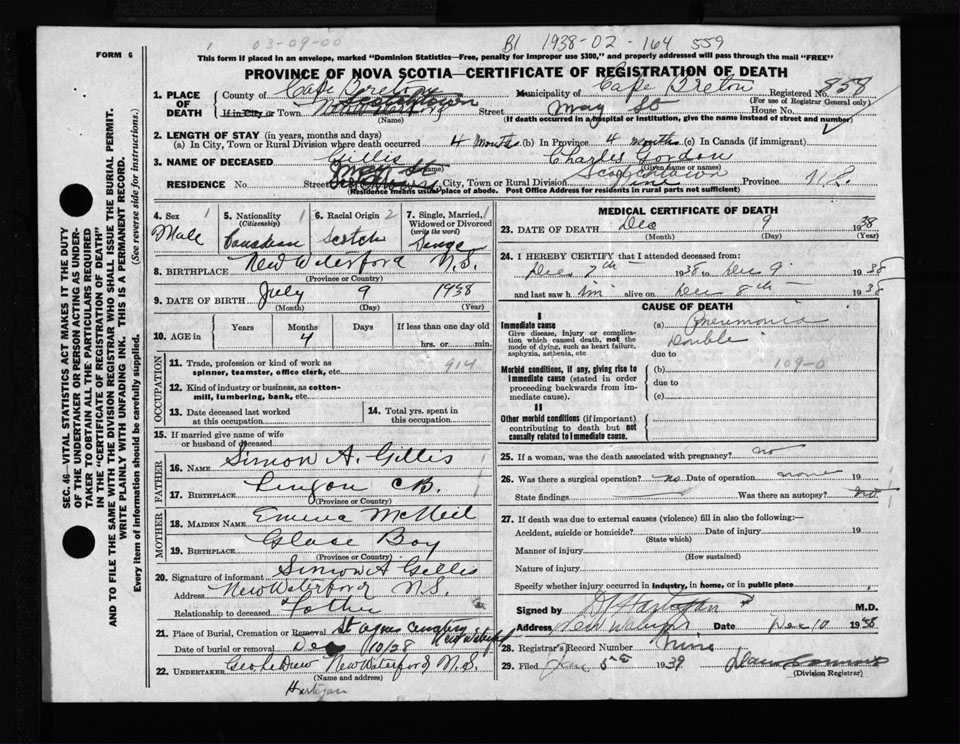 03-09-00
B1 1938-02-164 559
FORM 6
This form if placed in an envelope, marked "Dominion Statistics—Free, penalty for improper use $300," and properly addressed will pass through the mail "FREE"
PROVINCE OF NOVA SCOTIA—CERTIFICATE OF REGISTRATION OF DEATH
SEC. 46—VITAL STATISTICS ACT MAKES IT THE DUTY
OF THE UNDERTAKER OR PERSON ACTING AS UNDER-
TAKER TO OBTAIN ALL THE PARTICULARS REQUIRED
IN THE "CERTIFICATE OF REGISTRATION OF DEATH"
AND TO FILE THE SAME WITH THE DIVISION REGISTRAR WHO SHALL ISSUE THE BURIAL PERMIT.
WRITE PLAINLY WITH UNFADING INK. THIS IS A PERMANENT RECORD.
Every item of information should be carefully supplied. (See reverse side for instructions.)
1. PLACE OF DEATH County of Cape Breton Municipality of Cape Breton Registered No. 858
(For use of Registrar General only)
If in City or Town Scotchtown Street May St House No.
(Name) (If death occurred in a hospital or institution, give the name instead of street and number)
2. LENGTH OF STAY (in years, months and days)
(a) In City, Town or Rural Division where death occurred 4 months (b) In Province 4 months (c) In Canada (if immigrant)
3. NAME OF DECEASED Gillis Charles Gordon
(Given name or names)
RESIDENCE No. Street May St City, Town or Rural Division Scotchtown Province N.S.
(Residence means usual place of abode. Post Office Address for residents in rural parts not sufficient)
4. Sex 1 Male
5. Nationality 1 (Citizenship) Canadian
6. Racial Origin 2 Scotch
7. Single, Married, Widowed or Divorced 1 (write the word) Single
8. BIRTHPLACE New Waterford N.S.
(Province or Country)
9. DATE OF BIRTH July 9 1938
(Month) (Day) (Year)
10. AGE in Years Months 4 Days If less than one day old
hrs. or min.
OCCUPATION
11. Trade, profession or kind of work as spinner, teamster, office clerk, etc. 914
12. Kind of industry or business, as cotton-mill, lumbering, bank, etc.
13. Date deceased last worked at this occupation
14. Total yrs. spent in this occupation
15. If married give name of wife or husband of deceased
FATHER
16. NAME Simon A. Gillis
17. BIRTHPLACE Lingan C.B.
(Province or Country)
MOTHER
18. MAIDEN NAME Emma McNeil
19. BIRTHPLACE Glace Bay
(Province or Country)
20. Signature of informant Simon A Gillis
Address New Waterford N.S.
Relationship to deceased Father
21. Place of Burial, Cremation or Removal St Agnes Cemetery New Waterford
Date of burial or removal Dec 10/38
22. UNDERTAKER New Waterford N.S.
(Name and address)
Hartigan
MEDICAL CERTIFICATE OF DEATH
23. DATE OF DEATH Dec 9 1938
(Month) (Day) (Year)
24. I HEREBY CERTIFY that I attended deceased from:
Dec 7th 1938 to Dec 9 1938
and last saw him alive on Dec 8th 1938
CAUSE OF DEATH
I
Immediate cause (a) Pneumonia
Give disease, injury or complication which caused death, not the mode of dying, such as heart failure, asphyxia, asthenia, etc. Double
due to
Morbid conditions, if any, giving rise to immediate cause (stated in order proceeding backwards from immediate cause). (b) 109-0
due to
(c)
II
Other morbid conditions (if important) contributing to death but not causally related to immediate cause.
25. If a woman, was the death associated with pregnancy? no
26. Was there a surgical operation? no Date of operation none
State findings Was there an autopsy? no
27. If death was due to external causes (violence) fill in also the following:—
Accident, suicide or homicide? Date of injury 19
(State which)
Manner of injury
(How sustained)
Nature of injury
Specify whether injury occurred in industry, in home, or in public place
Signed by M.D.
Address New Waterford Date Dec 10 1938
28. Registrar's Record Number Nine
29. Filed Jan 5th 1939
(Division Registrar)